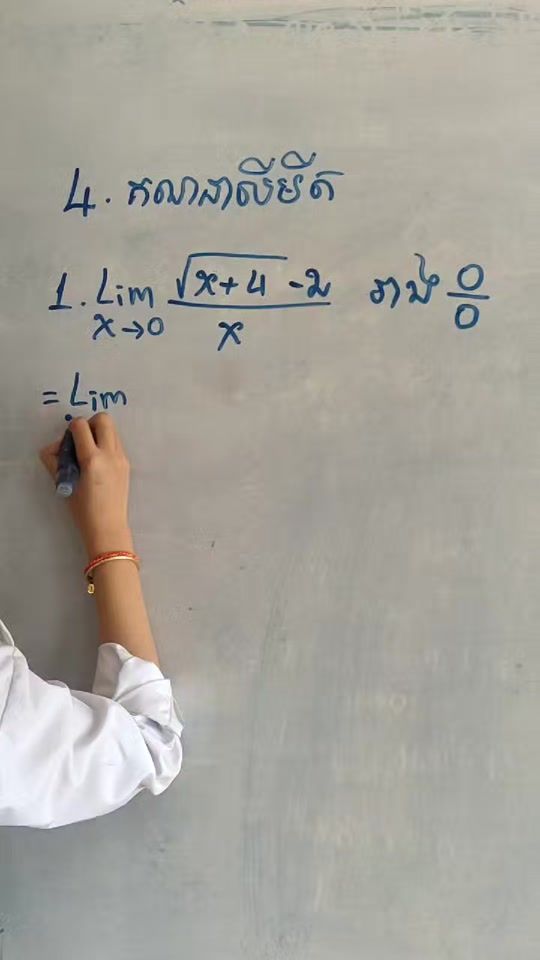 4. គណនាលីមីត
1. Lim x→0 (√(x+4) -2)/x រាង 0/0
= Lim